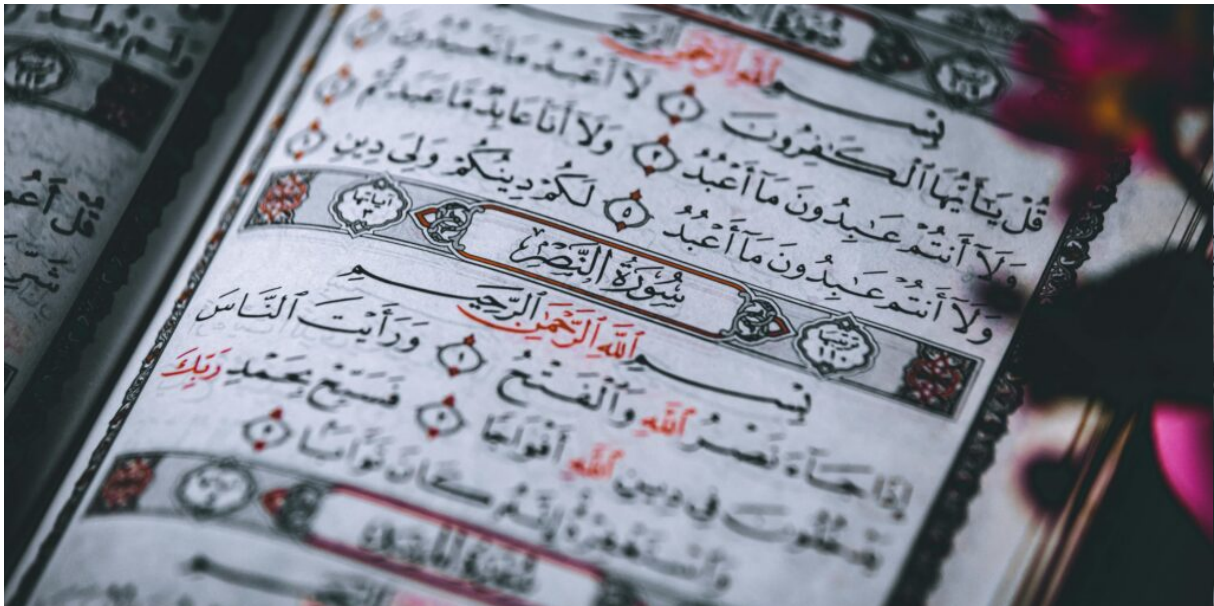 بِسْمِ ٱللَّهِ ٱلرَّحْمَٰنِ ٱلرَّحِيمِ
قُلْ يَٰٓأَيُّهَا ٱلْكَٰفِرُونَ ١ لَآ أَعْبُدُ مَا تَعْبُدُونَ ٢
وَلَآ أَنتُمْ عَٰبِدُونَ مَآ أَعْبُدُ ٣ وَلَآ أَنَا۠ عَابِدٌ مَّا عَبَدتُّمْ ٤
وَلَآ أَنتُمْ عَٰبِدُونَ مَآ أَعْبُدُ ٥ لَكُمْ دِينُكُمْ وَلِيَ دِينِ ٦
ترتيبها ١١٠ سُورَةُ النَّصْرِ آياتها ٣
بِسْمِ ٱللَّهِ ٱلرَّحْمَٰنِ ٱلرَّحِيمِ
إِذَا جَآءَ نَصْرُ ٱللَّهِ وَٱلْفَتْحُ ١ وَرَأَيْتَ ٱلنَّاسَ
يَدْخُلُونَ فِى دِينِ ٱللَّهِ أَفْوَاجًا ٢ فَسَبِّحْ بِحَمْدِ رَبِّكَ
وَٱسْتَغْفِرْهُ إِنَّهُۥ كَانَ تَوَّابًۢا ٣